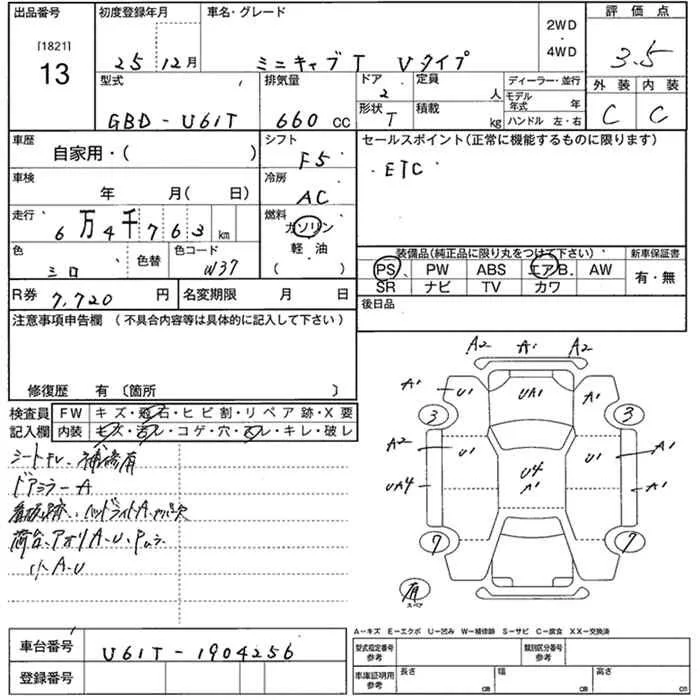 出品番号 初度登録年月 車名・グレード 2WD・4WD 評価点
[1821] 13 25 12月 ミニキャブT Vタイプ 3.5
外装 内装
C C
型式 排気量 ドア 定員 ディーラー・並行
GBD-U61T 660 CC 2 人 モデル年式 年
形状 T 積載 kg ハンドル 左・右
車歴 自家用・( ) シフト F5 セールスポイント(正常に機能するものに限ります)
車検 年 月( 日) 冷房 AC ETC
走行 6万4千763km 燃料 ガソリン
軽油
( )
色 シロ 色替 色コード W37
装備品(純正品に限り丸をつけて下さい) 新車保証書
PS PW ABS エアB. AW 有・無
SR ナビ TV カワ
R券 7,720円 名変期限 月 日 後日品
注意事項申告欄 (不具合内容等は具体的に記入して下さい)
修復歴 有 〔箇所 〕
検査員 FW キズ・飛石・ヒビ割・リペア跡・X要
記入欄 内装 キズ・汚レ・コゲ・穴・スレ・キレ・破レ
シートキレ、補修有
ドアミラーA
看板跡、ハンドライトA
荷台、アオリA-U、
小A-U
A2 A1 A2
A1 U1 UA1 A1 A1
3 3
A2 U1 U1 A1
UA4 U4 A1 A1
7 7
有
スペア
A-キズ E-エクボ U-凹み W-補修跡 S-サビ C-腐食 XX-交換済
車台番号 U61T-1904256
登録番号
型式指定番号 参考 類別区分番号 参考
車庫証明用 参考 長さ cm 幅 cm 高さ cm